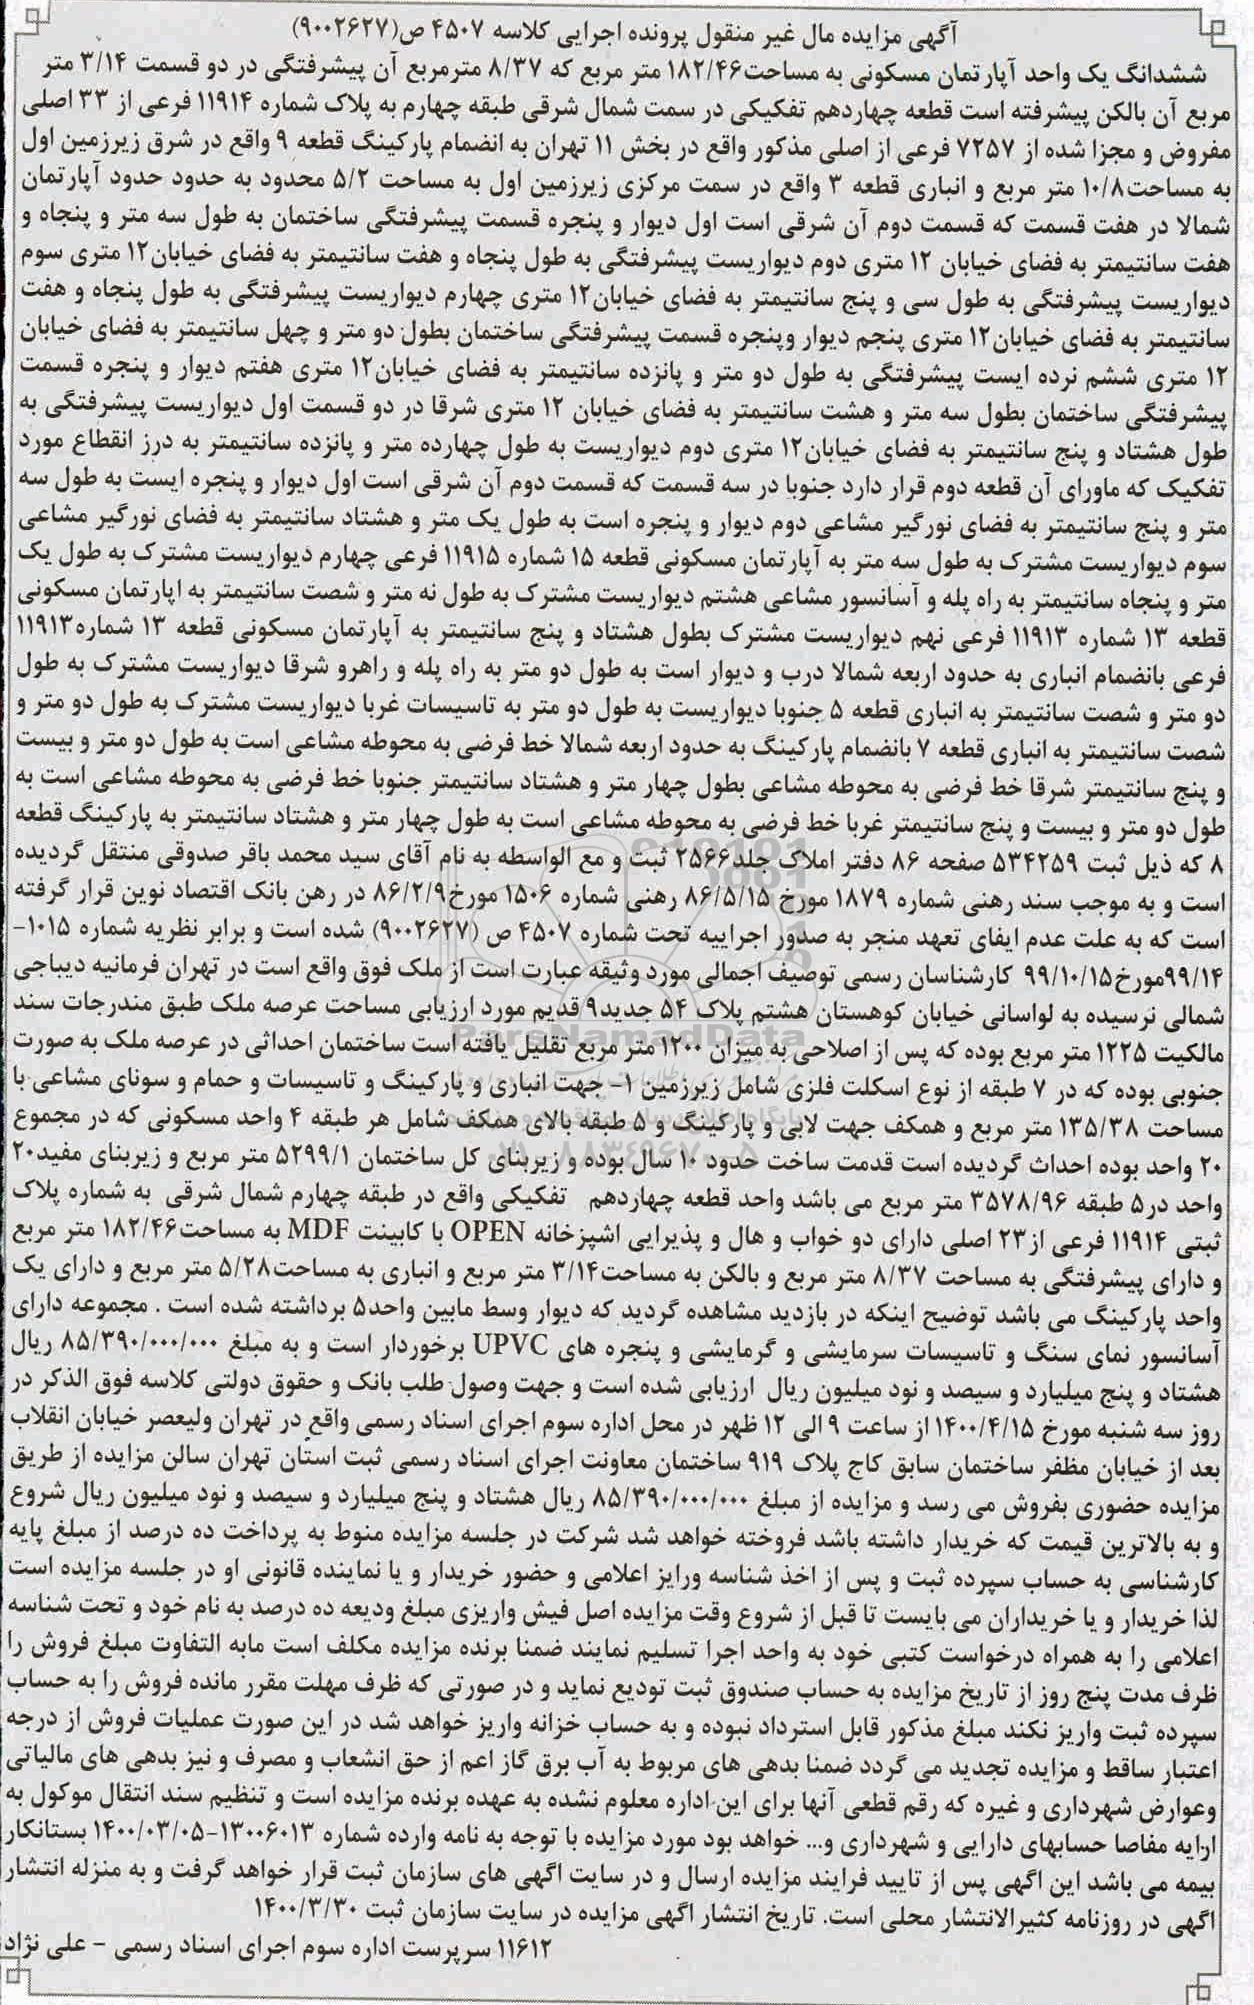 آگهی مزایده مال غیر منقول پرونده اجرایی کلاسه ۴۵۰۷ ص(۹۰۰۲۶۲۷)
ششدانگ یک واحد آپارتمان مسکونی به مساحت۱۸۲/۴۶ متر مربع که ۸/۳۷ مترمربع آن پیشرفتگی در دو قسمت ۳/۱۴ متر
مربع آن بالکن پیشرفته است قطعه چهاردهم تفکیکی در سمت شمال شرقی طبقه چهارم به پلاک شماره ۱۱۹۱۴ فرعی از ۳۳ اصلی
مفروض و مجزا شده از ۷۲۵۷ فرعی از اصلی مذکور واقع در بخش ۱۱ تهران به انضمام پارکینگ قطعه ۹ واقع در شرق زیرزمین اول
به مساحت۱۰/۸ متر مربع و انباری قطعه ۳ واقع در سمت مرکزی زیرزمین اول به مساحت ۵/۲ محدود به حدود حدود آپارتمان
شمالا در هفت قسمت که قسمت دوم آن شرقی است اول دیوار و پنجره قسمت پیشرفتگی ساختمان به طول سه متر و پنجاه و
هفت سانتیمتر به فضای خیابان ۱۲ متری دوم دیواریست پیشرفتگی به طول پنجاه و هفت سانتیمتر به فضای خیابان۱۲ متری سوم
دیواریست پیشرفتگی به طول سی و پنج سانتیمتر به فضای خیابان۱۲ متری چهارم دیواریست پیشرفتگی به طول پنجاه و هفت
سانتیمتر به فضای خیابان۱۲ متری پنجم دیوار وپنجره قسمت پیشرفتگی ساختمان بطول دو متر و چهل سانتیمتر به فضای خیابان
۱۲ متری ششم نرده ایست پیشرفتگی به طول دو متر و پانزده سانتیمتر به فضای خیابان۱۲ متری هفتم دیوار و پنجره قسمت
پیشرفتگی ساختمان بطول سه متر و هشت سانتیمتر به فضای خیابان ۱۲ متری شرقا در دو قسمت اول دیواریست پیشرفتگی به
طول هشتاد و پنج سانتیمتر به فضای خیابان۱۲ متری دوم دیواریست به طول چهارده متر و پانزده سانتیمتر به درز انقطاع مورد
تفکیک که ماورای آن قطعه دوم قرار دارد جنوبا در سه قسمت که قسمت دوم آن شرقی است اول دیوار و پنجره ایست به طول سه
متر و پنج سانتیمتر به فضای نورگیر مشاعی دوم دیوار و پنجره است به طول یک متر و هشتاد سانتیمتر به فضای نورگیر مشاعی
سوم دیواریست مشترک به طول سه متر به آپارتمان مسکونی قطعه ۱۵ شماره ۱۱۹۱۵ فرعی چهارم دیواریست مشترک به طول یک
متر و پنجاه سانتیمتر به راه پله و آسانسور مشاعی هشتم دیواریست مشترک به طول نه متر و شصت سانتیمتر به اپارتمان مسکونی
قطعه ۱۳ شماره ۱۱۹۱۳ فرعی نهم دیواریست مشترک بطول هشتاد و پنج سانتیمتر به آپارتمان مسکونی قطعه ۱۳ شماره۱۱۹۱۳
فرعی بانضمام انباری به حدود اربعه شمالا درب و دیوار است به طول دو متر به راه پله و راهرو شرقا دیواریست مشترک به طول
دو متر و شصت سانتیمتر به انباری قطعه ۵ جنوبا دیواریست به طول دو متر به تاسیسات غربا دیواریست مشترک به طول دو متر و
شصت سانتیمتر به انباری قطعه ۷ بانضمام پارکینگ به حدود اربعه شمالا خط فرضی به محوطه مشاعی است به طول دو متر و بیست
و پنج سانتیمتر شرقا خط فرضی به محوطه مشاعی بطول چهار متر و هشتاد سانتیمتر جنوبا خط فرضی به محوطه مشاعی است به
طول دو متر و بیست و پنج سانتیمتر غربا خط فرضی به محوطه مشاعی است به طول چهار متر و هشتاد سانتیمتر به پارکینگ قطعه
۸ که ذیل ثبت ۵۳۴۲۵۹ صفحه ۸۶ دفتر املاک جلد۲۵۶۶ ثبت و مع الواسطه به نام آقای سید محمد باقر صدوقی منتقل گردیده
است و به موجب سند رهنی شماره ۱۸۷۹ مورخ ۸۶/۵/۱۵ رهنی شماره ۱۵۰۶ مورخ۸۶/۲/۹ در رهن بانک اقتصاد نوین قرار گرفته
است که به علت عدم ایفای تعهد منجر به صدور اجراییه تحت شماره ۴۵۰۷ ص (۹۰۰۲۶۲۷) شده است و برابر نظریه شماره ۱۰۱۵-
۹۹/۱۴مورخ۹۹/۱۰/۱۵ کارشناسان رسمی توصیف اجمالی مورد وثیقه عبارت است از ملک فوق واقع است در تهران فرمانیه دیباجی
شمالی نرسیده به لواسانی خیابان کوهستان هشتم پلاک ۵۴ جدید۹ قدیم مورد ارزیابی مساحت عرصه ملک طبق مندرجات سند
مالکیت ۱۲۲۵ متر مربع بوده که پس از اصلاحی به میزان ۱۲۰۰ متر مربع تقلیل یافته است ساختمان احداثی در عرصه ملک به صورت
جنوبی بوده که در ۷ طبقه از نوع اسکلت فلزی شامل زیرزمین ۱- جهت انباری و پارکینگ و تاسیسات و حمام و سونای مشاعی با
مساحت ۱۳۵/۳۸ متر مربع و همکف جهت لابی و پارکینگ و ۵ طبقه بالای همکف شامل هر طبقه ۴ واحد مسکونی که در مجموع
۲۰ واحد بوده احداث گردیده است قدمت ساخت حدود ۱۰ سال بوده و زیربنای کل ساختمان ۵۲۹۹/۱ متر مربع و زیربنای مفید۲۰
واحد در۵ طبقه ۳۵۷۸/۹۶ متر مربع می باشد واحد قطعه چهاردهم تفکیکی واقع در طبقه چهارم شمال شرقی به شماره پلاک
ثبتی ۱۱۹۱۴ فرعی از۲۳ اصلی دارای دو خواب و هال و پذیرایی اشپزخانه OPEN با کابینت MDF به مساحت۱۸۲/۴۶ متر مربع
و دارای پیشرفتگی به مساحت ۸/۳۷ متر مربع و بالکن به مساحت۳/۱۴ متر مربع و انباری به مساحت۵/۲۸ متر مربع و دارای یک
واحد پارکینگ می باشد توضیح اینکه در بازدید مشاهده گردید که دیوار وسط مابین واحد۵ برداشته شده است . مجموعه دارای
آسانسور نمای سنگ و تاسیسات سرمایشی و گرمایشی و پنجره های UPVC برخوردار است و به مبلغ ۸۵/۳۹۰/۰۰۰/۰۰۰ ریال
هشتاد و پنج میلیارد و سیصد و نود میلیون ریال ارزیابی شده است و جهت وصول طلب بانک و حقوق دولتی کلاسه فوق الذکر در
روز سه شنبه مورخ ۱۴۰۰/۴/۱۵ از ساعت ۹ الی ۱۲ ظهر در محل اداره سوم اجرای اسناد رسمی واقع در تهران ولیعصر خیابان انقلاب
بعد از خیابان مظفر ساختمان سابق کاج پلاک ۹۱۹ ساختمان معاونت اجرای اسناد رسمی ثبت استان تهران سالن مزایده از طریق
مزایده حضوری بفروش می رسد و مزایده از مبلغ ۸۵/۳۹۰/۰۰۰/۰۰۰ ریال هشتاد و پنج میلیارد و سیصد و نود میلیون ریال شروع
و به بالاترین قیمت که خریدار داشته باشد فروخته خواهد شد شرکت در جلسه مزایده منوط به پرداخت ده درصد از مبلغ پایه
کارشناسی به حساب سپرده ثبت و پس از اخذ شناسه ورایز اعلامی و حضور خریدار و یا نماینده قانونی او در جلسه مزایده است
لذا خریدار و یا خریداران می بایست تا قبل از شروع وقت مزایده اصل فیش واریزی مبلغ ودیعه ده درصد به نام خود و تحت شناسه
اعلامی را به همراه درخواست کتبی خود به واحد اجرا تسلیم نمایند ضمنا برنده مزایده مکلف است مابه التفاوت مبلغ فروش را
ظرف مدت پنج روز از تاریخ مزایده به حساب صندوق ثبت تودیع نماید و در صورتی که ظرف مهلت مقرر مانده فروش را به حساب
سپرده ثبت واریز نکند مبلغ مذکور قابل استرداد نبوده و به حساب خزانه واریز خواهد شد در این صورت عملیات فروش از درجه
اعتبار ساقط و مزایده تجدید می گردد ضمنا بدهی های مربوط به آب برق گاز اعم از حق انشعاب و مصرف و نیز بدهی های مالیاتی
وعوارض شهرداری و غیره که رقم قطعی آنها برای این اداره معلوم نشده به عهده برنده مزایده است و تنظیم سند انتقال موکول به
ارایه مفاصا حسابهای دارایی و شهرداری و... خواهد بود مورد مزایده با توجه به نامه وارده شماره ۱۳۰۰۶۰۱۳-۱۴۰۰/۰۳/۰۵ بستانکار
بیمه می باشد این اگهی پس از تایید فرایند مزایده ارسال و در سایت اگهی های سازمان ثبت قرار خواهد گرفت و به منزله انتشار
اگهی در روزنامه کثیرالانتشار محلی است. تاریخ انتشار اگهی مزایده در سایت سازمان ثبت ۱۴۰۰/۳/۳۰
۱۱۶۱۲ سرپرست اداره سوم اجرای اسناد رسمی - علی نژاد
ParsNamadData